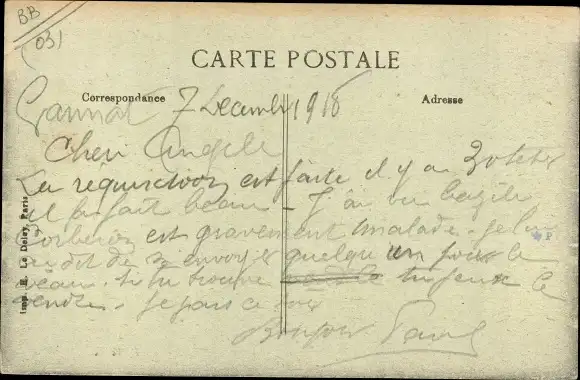 BB
031
CARTE POSTALE
Correspondance
Adresse
Gannat 7 Decembre 1916
Cher Angele
La requisition est faite il y a 3
Il fait beau - J'ai vu
est gravement malade. Je lui
ai dit de m'envoyer quelqu'un pour le
veau. Si tu trouve tu peux le
vendre. Je pars ce soir
Bonjour Paul
Imp. E. Le Deley, Paris